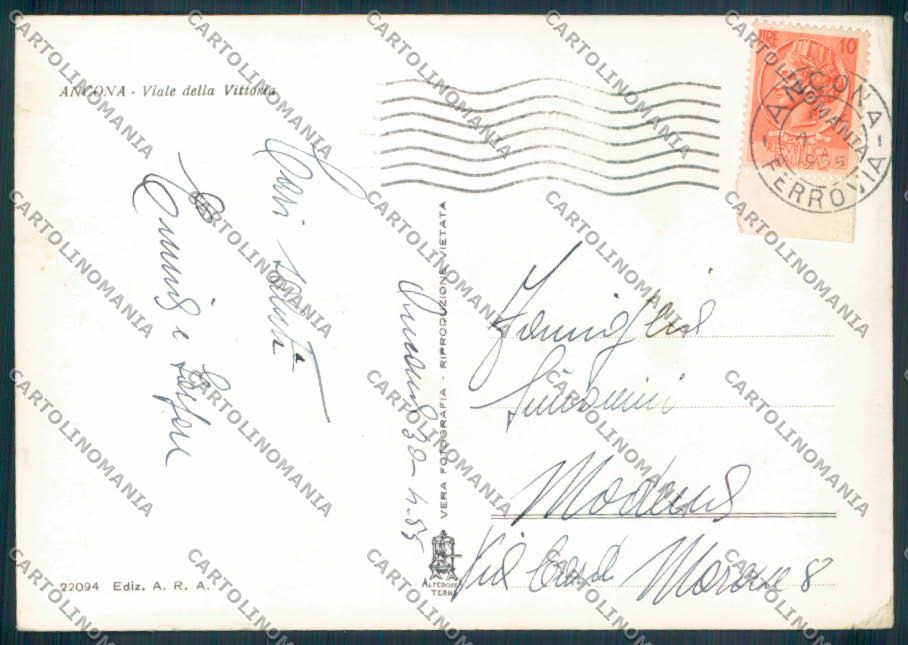 ANCONA - Viale della Vittoria
LIRE 10
ANCONA
FERROVIA
1955
REPUBBLICA
ITALIANA
Cari saluti
Ancona 30-4-55
VERA FOTOGRAFIA - RIPRODUZIONE VIETATA
Famiglia
Modena
Via Card Morone 8
22094 Ediz. A. R. A.
ALTEROCCA
TERNI
CARTOLINOMANIA